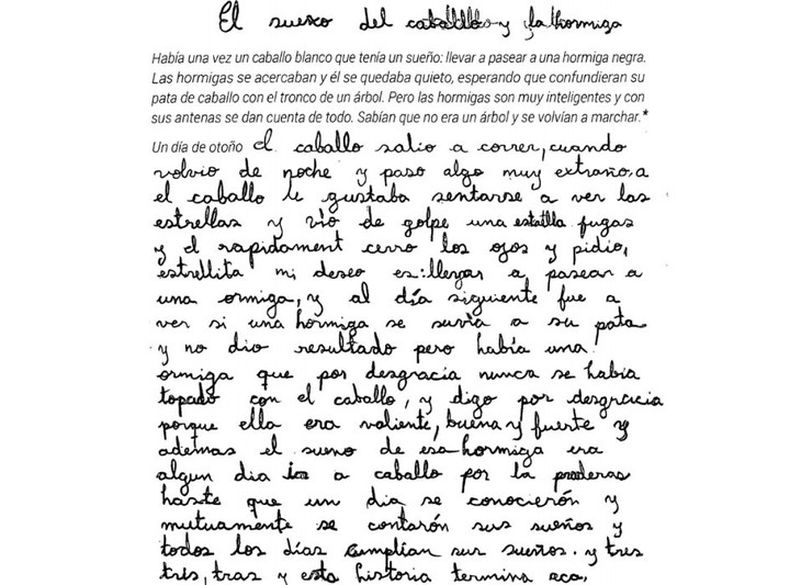 El sueño del caballo y la hormiga
Había una vez un caballo blanco que tenía un sueño: llevar a pasear a una hormiga negra.
Las hormigas se acercaban y él se quedaba quieto, esperando que confundieran su
pata de caballo con el tronco de un árbol. Pero las hormigas son muy inteligentes y con
sus antenas se dan cuenta de todo. Sabían que no era un árbol y se volvían a marchar.*
Un día de otoño el caballo salio a correr, cuando
volvio de noche y paso algo muy extraño, a
el caballo le gustaba sentarse a ver las
estrellas y vio de golpe una estrella fugas
y el rapidament cerro los ojos y pidio,
estrellita mi deseo es: llevar a pasear a
una ormiga, y al día siguiente fue a
ver si una hormiga se suvia a su pata
y no dio resultado pero había una
ormiga que por desgracia nunca se había
topado con el caballo, y digo por desgracia
porque ella era valiente, buena y fuerte y
ademas el sueno de esa hormiga era
algun dia ir a caballo por la praderas
haste que un dia se conocierón y
mutuamente se contarón sus sueños y
todos los días cumplian sus sueños. y tres
tris, tras y esta historia termina aca.